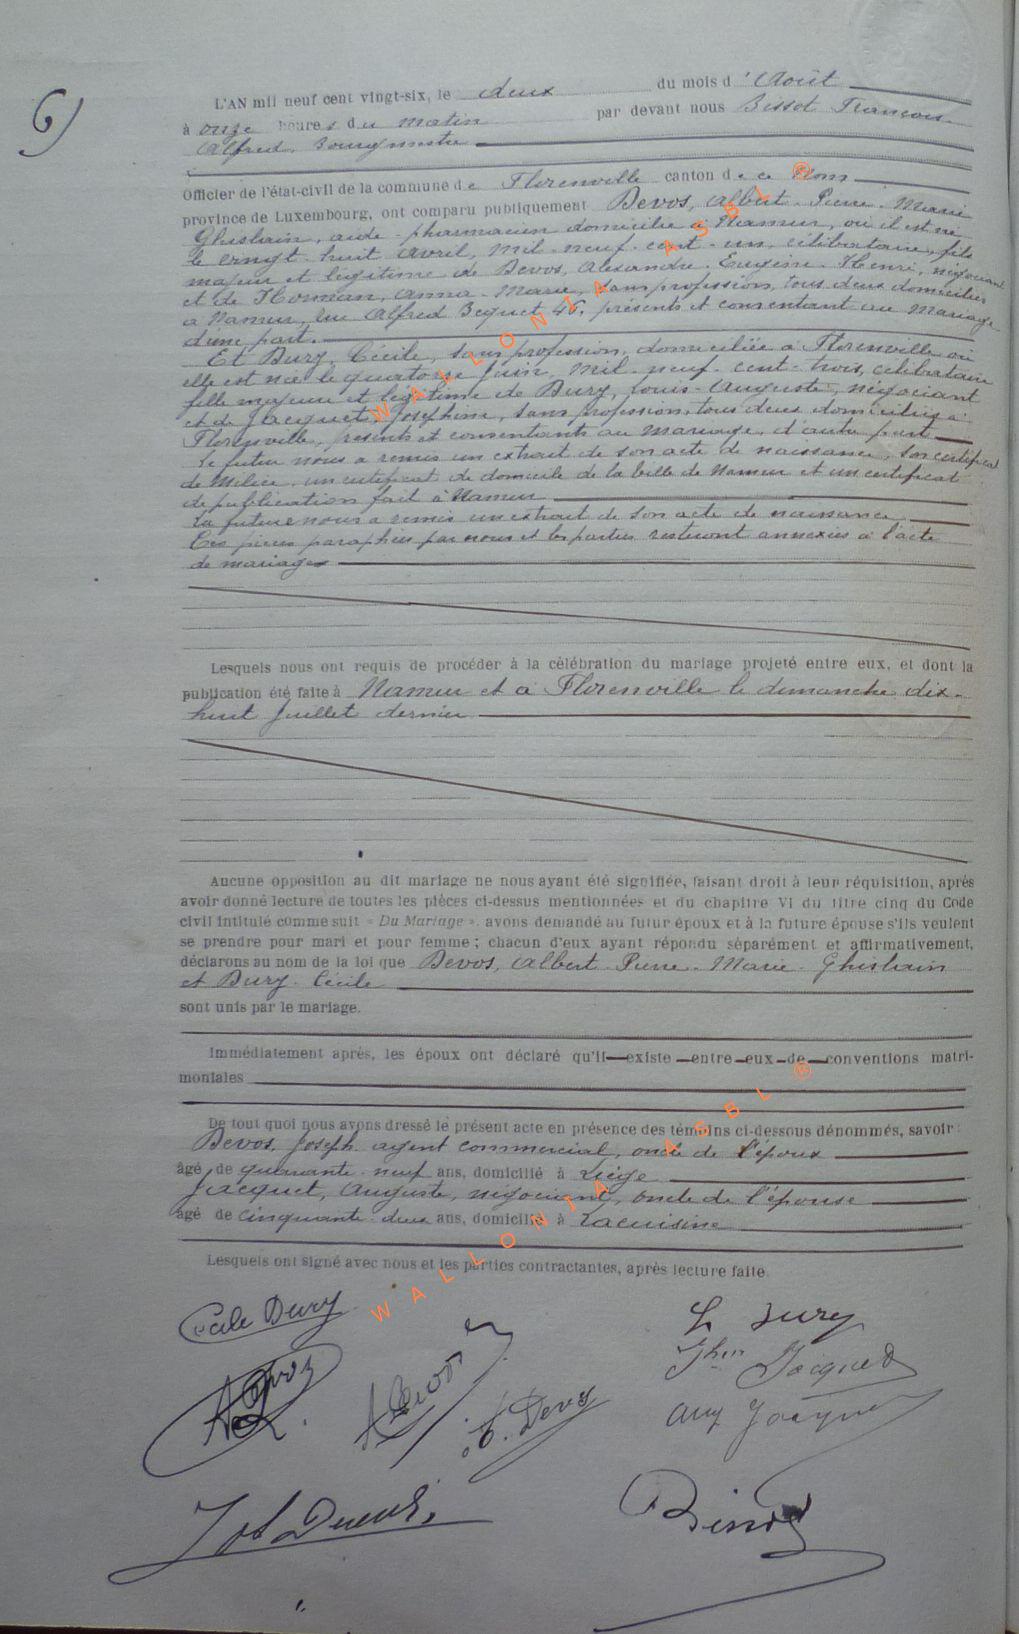 6)
L'AN mil neuf cent vingt-six, le deux du mois d'Août
à onze heures du matin par devant nous Bissot François
Alfred, Bourgmestre
Officier de l'état-civil de la commune de Florenville canton de ce Nom
province de Luxembourg, ont comparu publiquement Devos, Albert-Pierre-Marie
Ghislain, aide-pharmacien domicilié à Namur, où il est né
le vingt-huit avril, mil-neuf-cent-un, célibataire, fils
majeur et légitime de Devos, Alexandre-Eugène-Henri, négociant
et de Thomman, Anna-Marie, sans profession, tous deux domiciliés
à Namur, rue Alfred Becquet 46, présents et consentant au mariage
d'une part.
Et Dury, Cécile, sans profession, domiciliée à Florenville où
elle est née le quatorze juin, mil-neuf-cent-trois, célibataire
fille majeure et légitime de Dury, Louis-Auguste, négociant
et de Jacquet, Joséphine, sans profession, tous deux domiciliés à
Florenville, présents et consentants au mariage, d'autre part
Le futur nous a remis un extrait de son acte de naissance, son certificat
de Milice, un certificat de domicile de la ville de Namur et un certificat
de publication fait à Namur
La future nous a remis un extrait de son acte de naissance
Ces pièces paraphées par nous et les parties resteront annexées à l'acte
de mariage
Lesquels nous ont requis de procéder à la célébration du mariage projeté entre eux, et dont la
publication été faite à Namur et à Florenville le dimanche dix-
huit Juillet dernier
Aucune opposition au dit mariage ne nous ayant été signifiée, faisant droit à leur réquisition, après
avoir donné lecture de toutes les pièces ci-dessus mentionnées et du chapitre VI du titre cinq du Code
civil intitulé comme suit « Du Mariage ». avons demandé au futur époux et à la future épouse s'ils veulent
se prendre pour mari et pour femme ; chacun d'eux ayant répondu séparément et affirmativement,
déclarons au nom de la loi que Devos, Albert-Pierre-Marie-Ghislain
et Dury-Cécile
sont unis par le mariage.
Immédiatement après, les époux ont déclaré qu'il existe entre eux de conventions matri-
moniales
De tout quoi nous avons dressé le présent acte en présence des témoins ci-dessous dénommés, savoir :
Devos, Joseph agent commercial, oncle de l'époux
âgé de quarante-neuf ans, domicilié à Liège
Jacquet, Auguste, négociant, oncle de l'épouse
âgé de cinquante-deux ans, domicilié à Lacuisine
Lesquels ont signé avec nous et les parties contractantes, après lecture faite.
Cécile Dury
L Dury
Jhin Jacquet
A Devos
A Devos
A. Devos
Aug Jacquet
Jos Devos
WALLONIA ASBL ®
WALLONIA ASBL ®